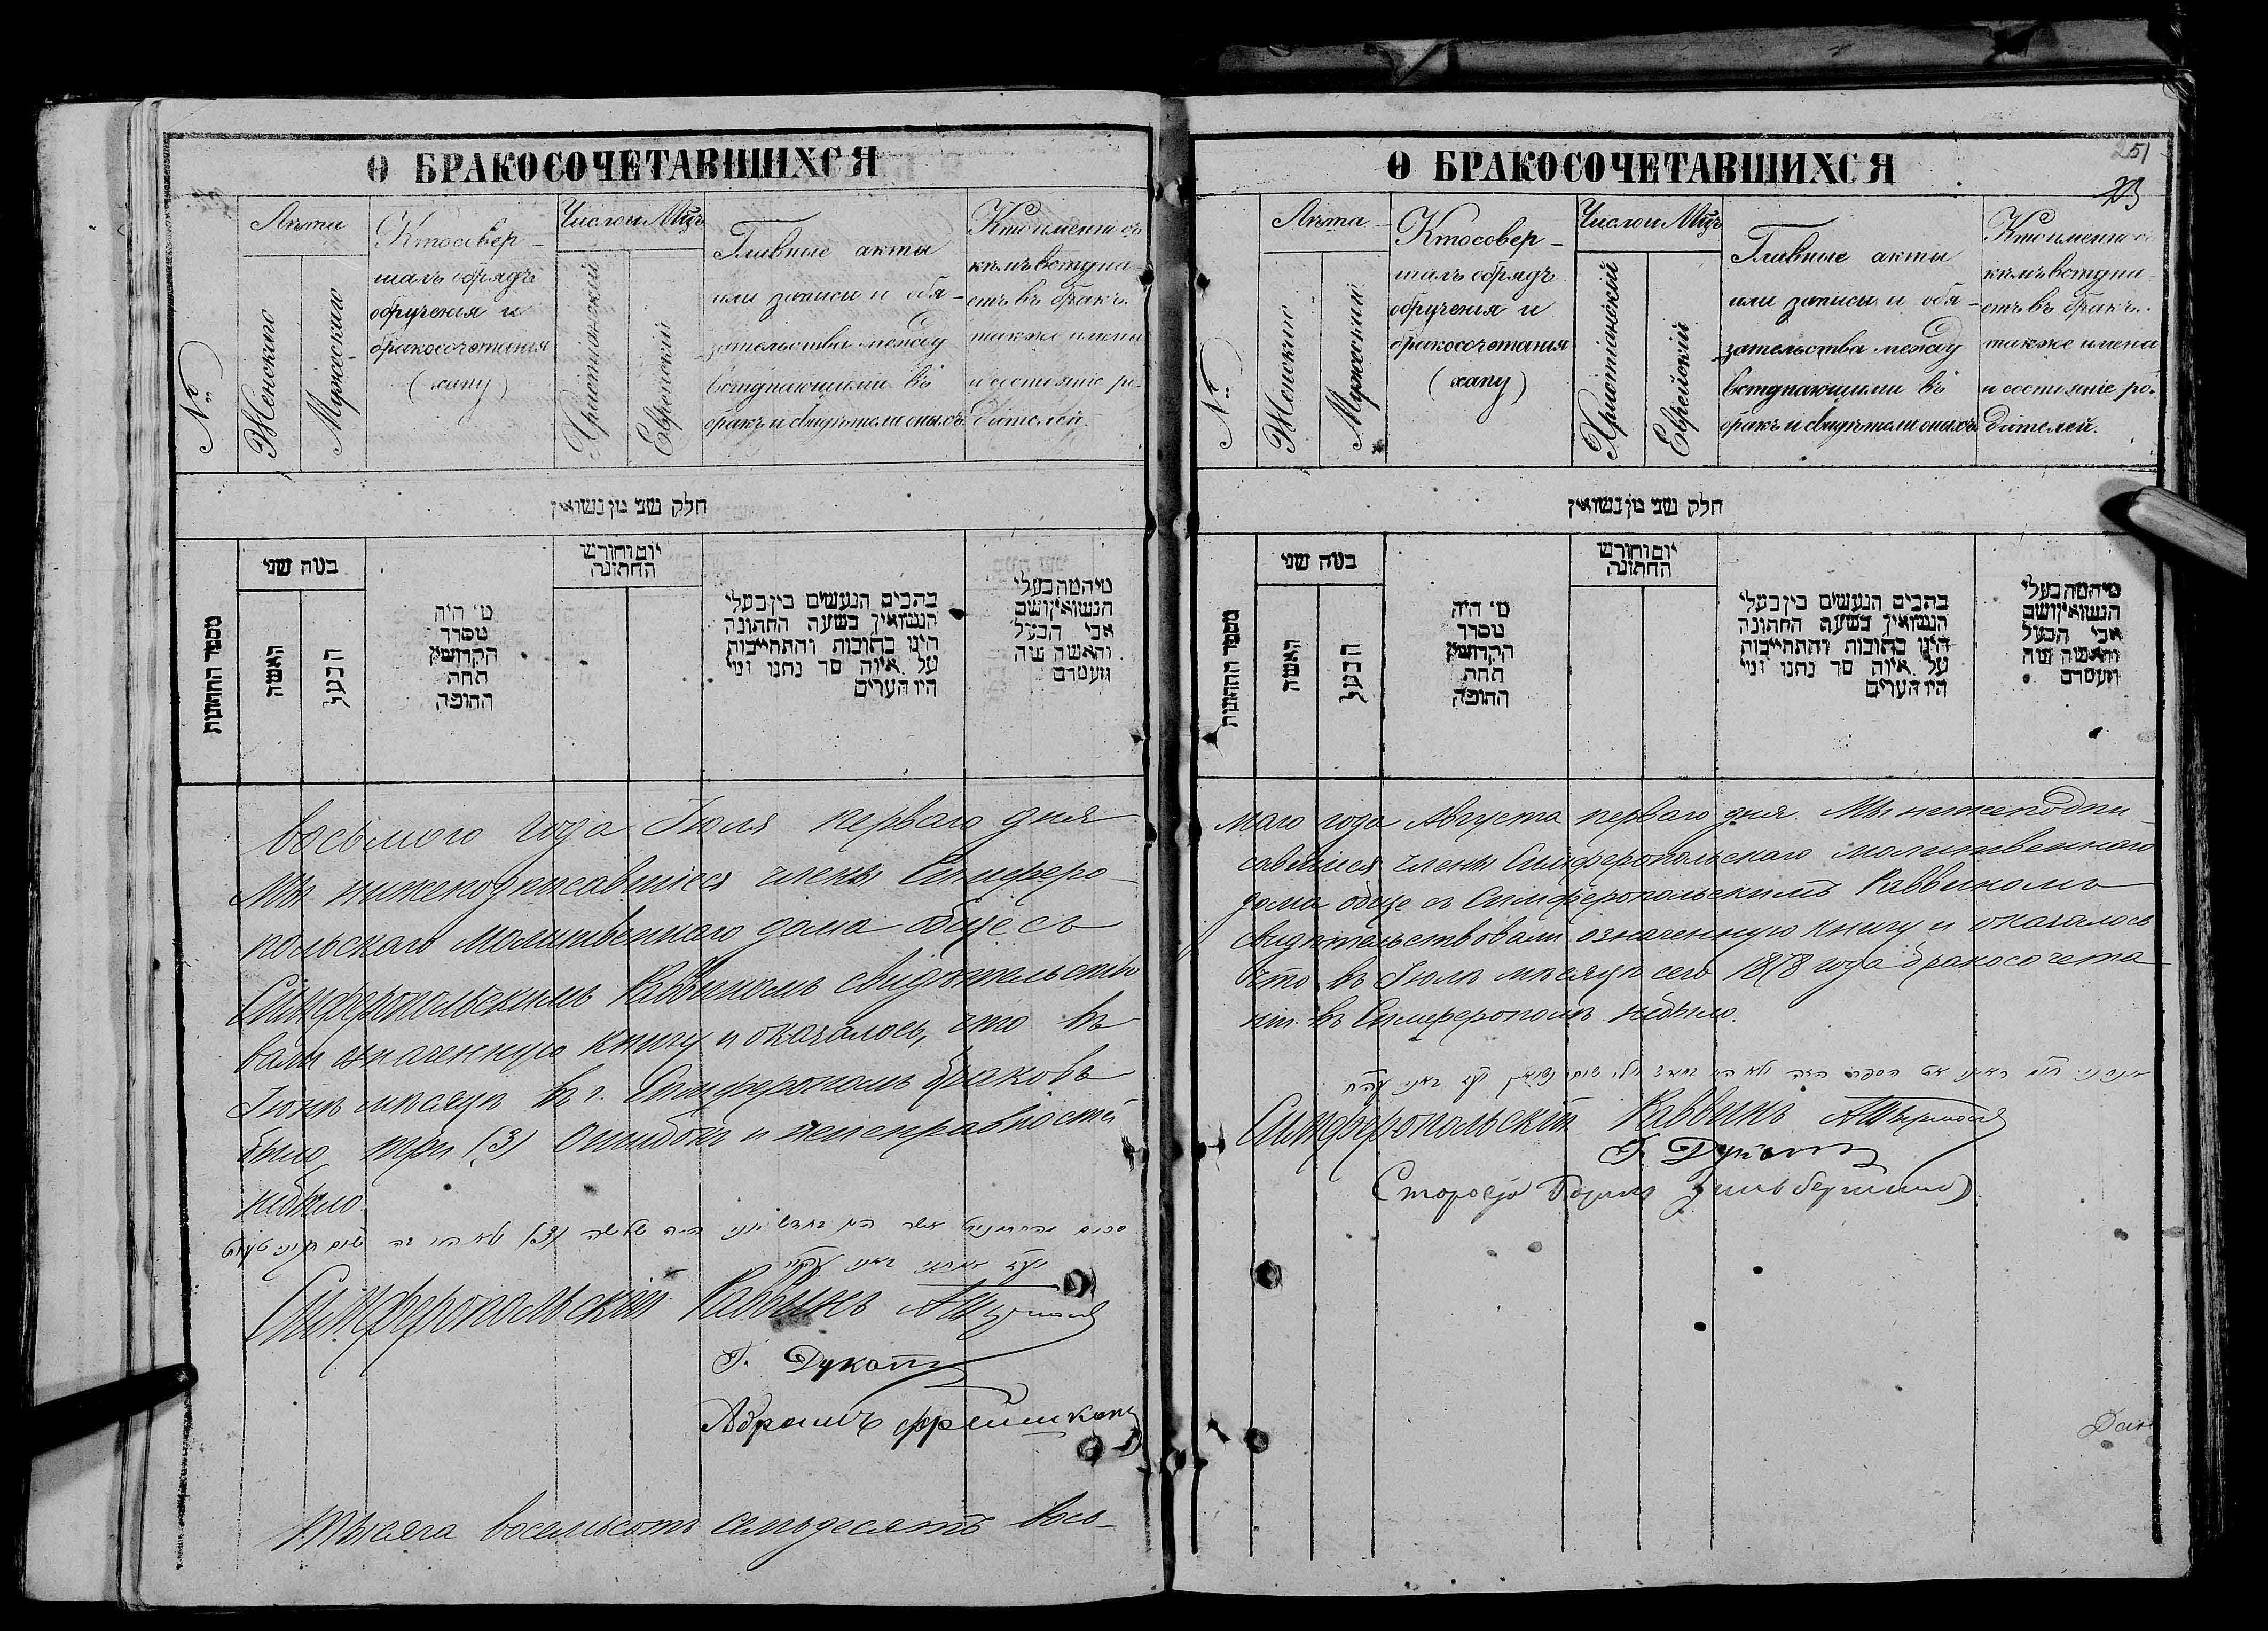 О БРАКОСОЧЕТАВШИХСЯ
№
Лѣта
Женскаго
Мужескаго
Кто совер-
шалъ обрядъ
обрученія и
бракосочетанія
(хапу)
Число и Мѣц.
Христіанскій
Еврейскій
Главные акты
или записи и обя-
зательства между
вступающими въ
бракъ и свидѣтели оныхъ
Кто именно съ
кѣмъ вступа-
етъ въ бракъ.
также имена
и состояніе ро-
дителей.
חלק שני מן נשואין
מספר החתונות
במה שני
האשה
הבעל
מי היה
מסדר
הקדושין
תחת
החופה
יום וחודש
החתונה
כתבים הנעשים בין בעלי
הנשואין בשעת החתונה
היינו כתובות והתחייבות
על איזה סך נתנו ומי
היו העדים
מי המה בעלי
הנשואין ושם
אבי הבעל
והאשה ומה
מעמדם
восьмого года Іюля перваго дня
Мы нижеподписавшіеся члены Симферо-
польскаго молитвеннаго дома обще съ
Симферопольскимъ Раввиномъ свидѣтельство
вали означенную книгу и оказалось, что въ
Іюнѣ мѣсяцѣ въ г. Симферополѣ браковъ
было три (3) ошибокъ и неисправностей
небыло
Симферопольскій Раввинъ
Г. Дукатъ
Абрамъ
Тысяча восемьсотъ семьдесятъ вось-
О БРАКОСОЧЕТАВШИХСЯ
251
№
Лѣта
Женскаго
Мужескаго
Кто совер-
шалъ обрядъ
обрученія и
бракосочетанія
(хапу)
Число и Мѣц.
Христіанскій
Еврейскій
Главные акты
или записи и обя-
зательства между
вступающими въ
бракъ и свидѣтели оныхъ
Кто именно съ
кѣмъ вступа-
етъ въ бракъ.
также имена
и состояніе ро-
дителей.
חלק שני מן נשואין
מספר החתונות
במה שני
האשה
הבעל
מי היה
מסדר
הקדושין
תחת
החופה
יום וחודש
החתונה
כתבים הנעשים בין בעלי
הנשואין בשעת החתונה
היינו כתובות והתחייבות
על איזה סך נתנו ומי
היו העדים
מי המה בעלי
הנשואין ושם
אבי הבעל
והאשה ומה
מעמדם
маго года Августа перваго дня. Мы нижеподпи-
савшіеся члены Симферопольскаго молитвеннаго
дома обще съ Симферопольскимъ Раввиномъ
свидѣтельствовали означенную книгу и оказалось
что въ Іюлѣ мѣсяцѣ сего 1878 года бракосочета-
ній въ Симферополѣ небыло.
Симферопольскій Раввинъ
Г. Дукатъ